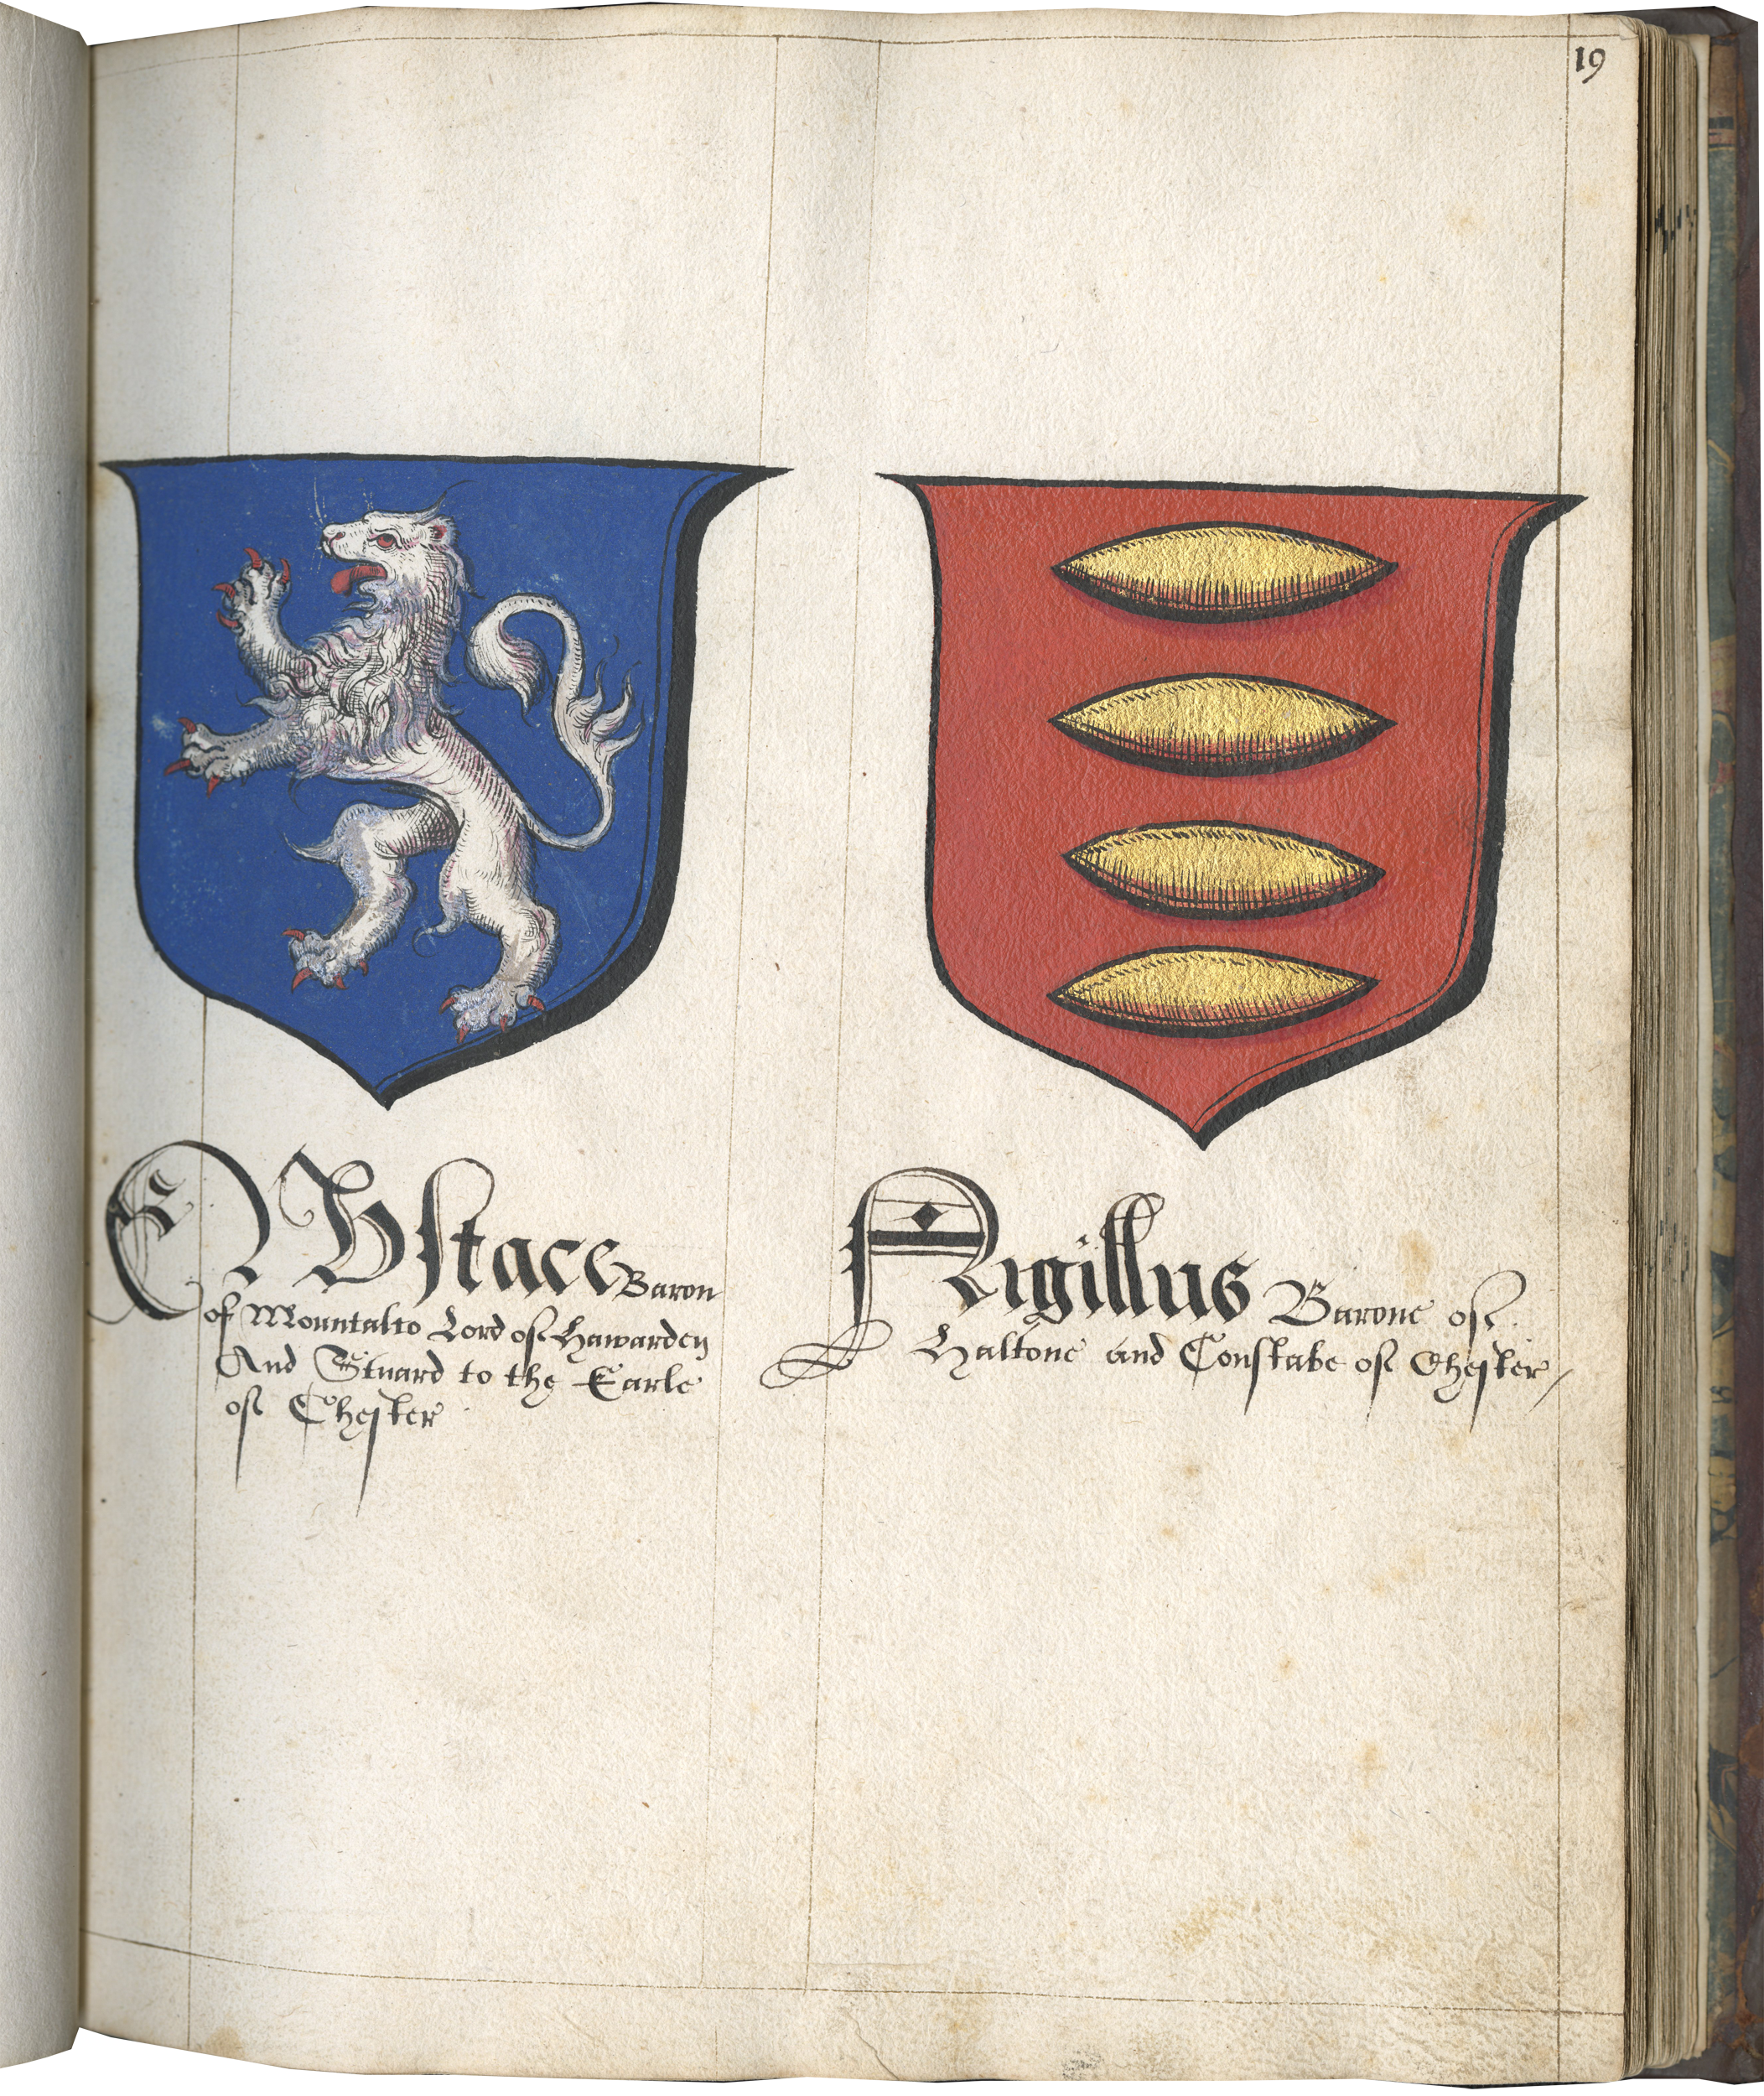 19
EVstace Baron
of Mountalto Lord of Hawarden
And Stuard to the Earle
of Chester
Nigillus Barone of
Haltone and Constabe of Chester